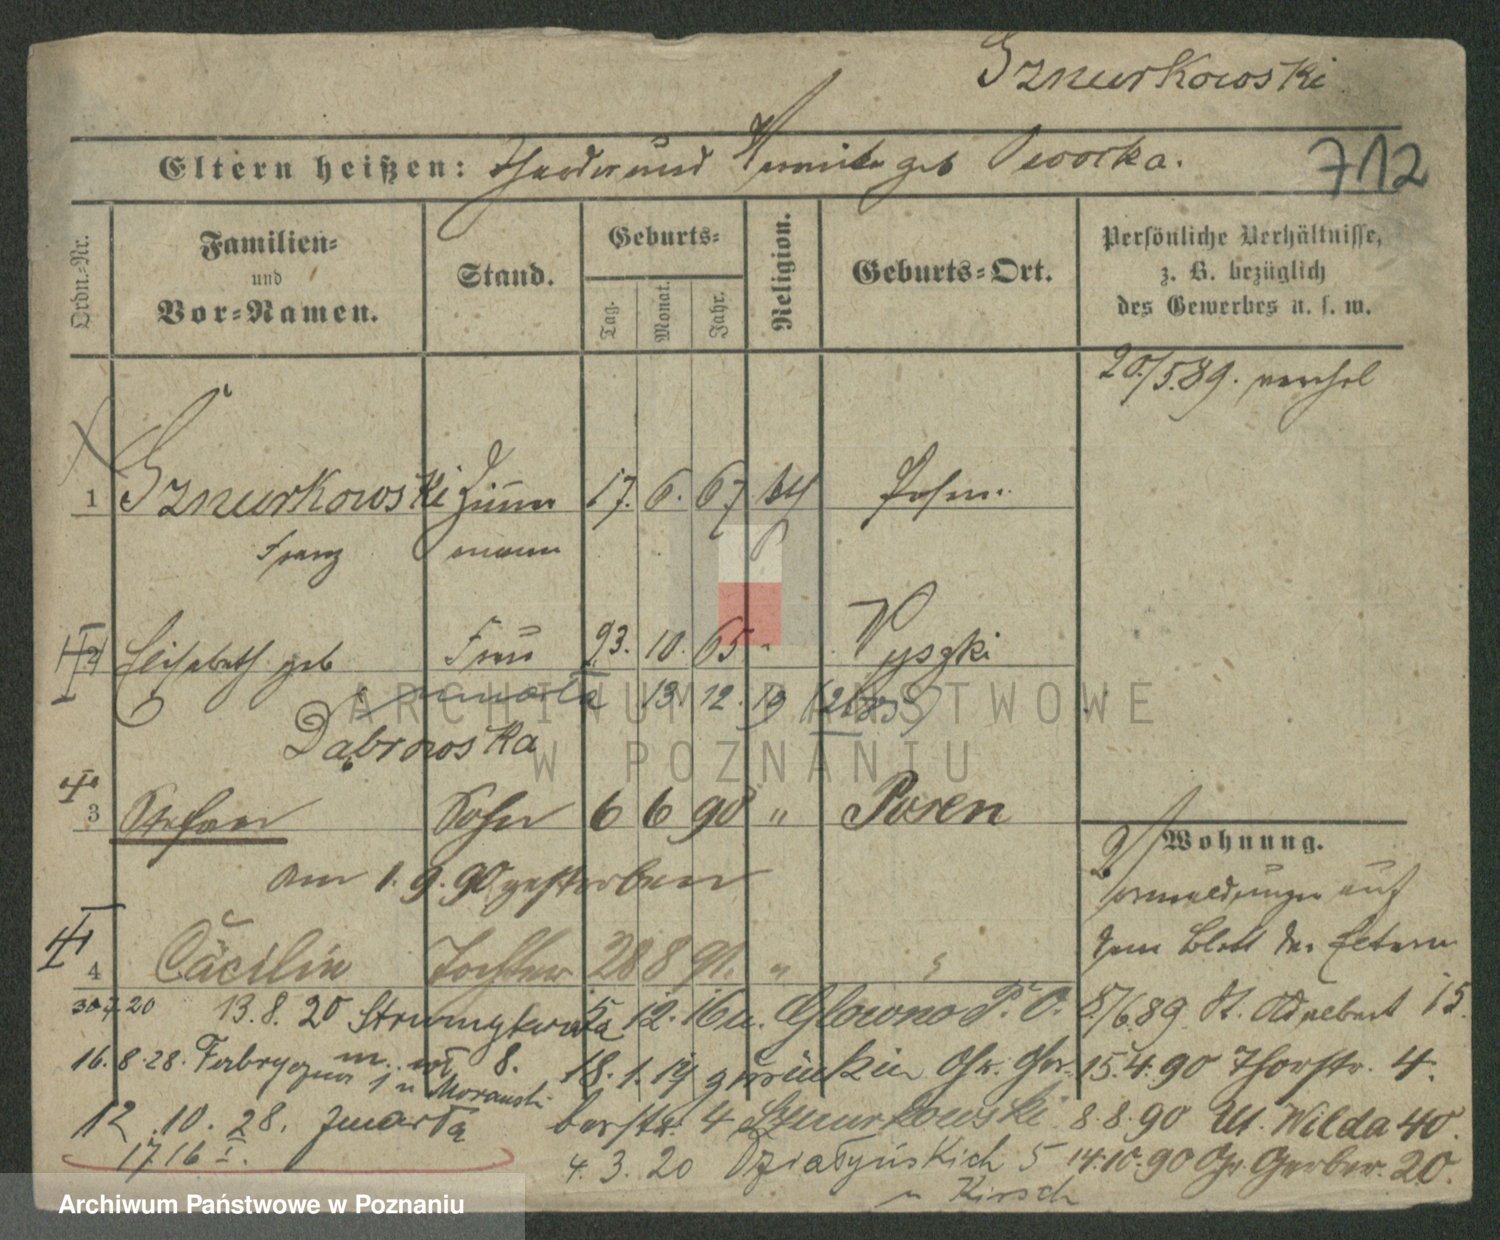 Sznurkowski
Eltern heißen: Theodor und geb
712
Ordn.-Nr.
Familien- und Vor-Namen.
Stand.
Geburts-
Tag. Monat. Jahr.
Religion.
Geburts-Ort.
Persönliche Verhältnisse, z. B. bezüglich des Gewerbes u. s. w.
20./5.89.
1 Sznurkowski Zimmer 17. 6. 67 kth Posen
Franz mann
2 Elisabeth geb Frau 23. 10. 65 "
zmarła 13. 12. 19
Dąbrowska
3 Stefan Sohn 6 6 90 " Posen
am 1. 9. 90 gestorben
Wohnung.
Vormeldungen auf
dem Blatt der Eltern
4 Cäcilie Tochter 28 8 91. " "
30.7.20 13.8.20 15 12. 16 u. Glowno P. O. 8/6.89. St. Adalbert 15.
16.8.28. Fabryczna m. 8. 18. 1. 19 Gr. Ger- 15.4.90 Thorstr. 4.
berstr. 4 Sznurkowski 8.8.90 Ut. Wilda 40.
12.10.28. zmarła
1716 I. 4.3.20 Działyńskich 5 14.10.90 Gr. Gerber. 20.
u Kirsch
ARCHIWUM PAŃSTWOWE
W POZNANIU
Archiwum Państwowe w Poznaniu